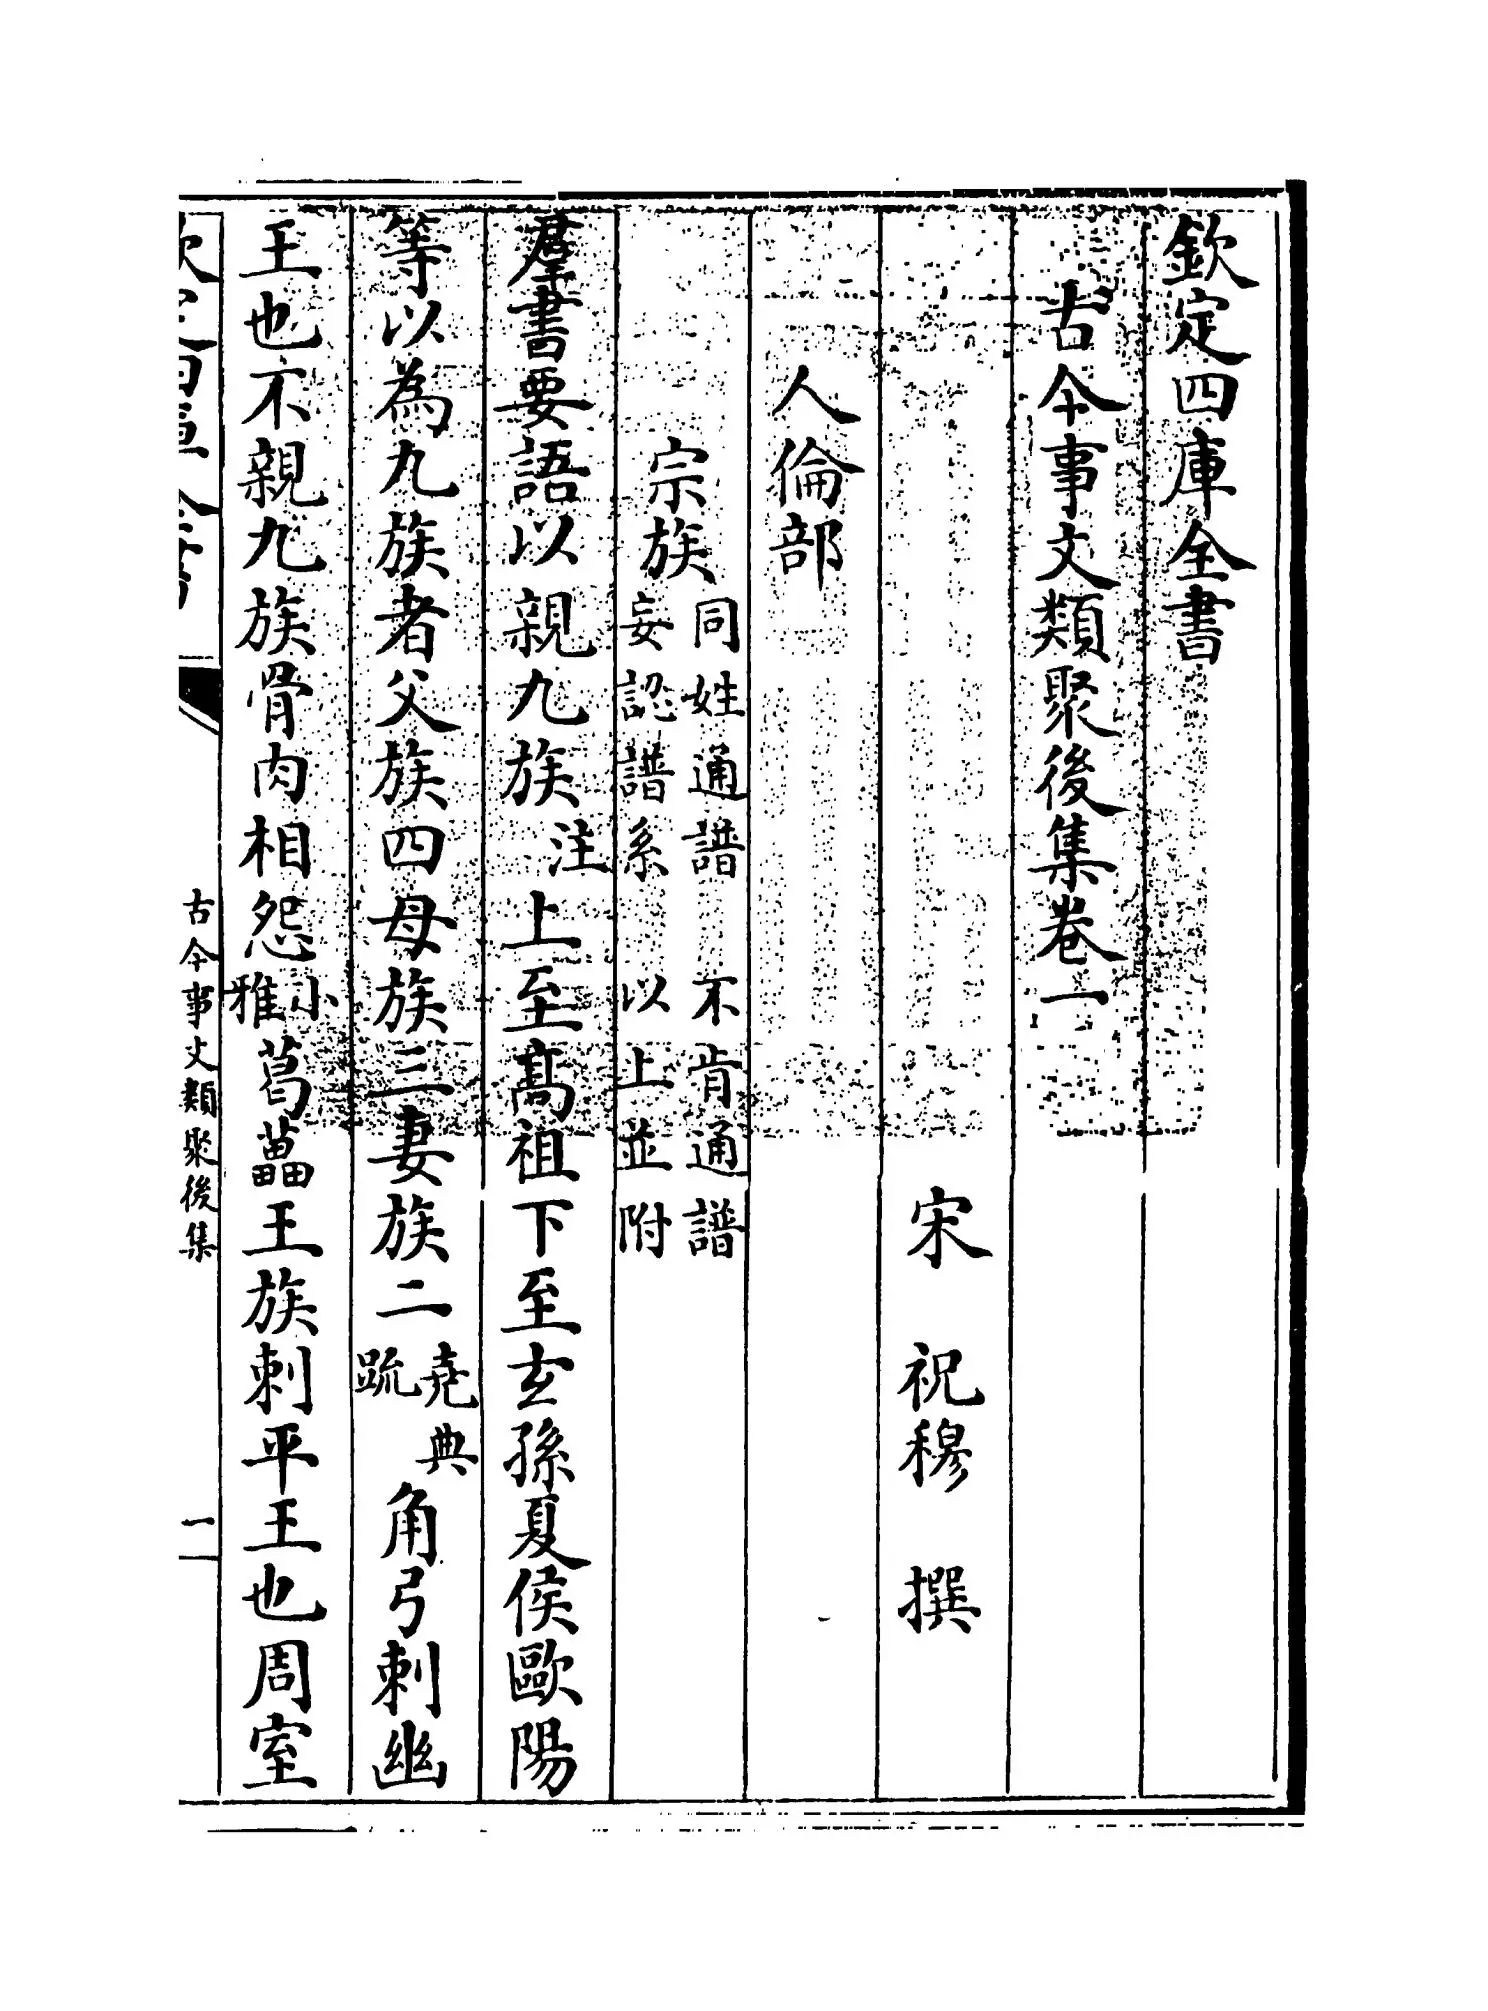 欽定四庫全書
古今事文類聚後集卷一
宋 祝穆 撰
人倫部
宗族同姓通譜 不肯通譜妄認譜系 以上並附
羣書要語以親九族注上至髙祖下至玄孫夏侯歐陽
等以為九族者父族四母族三妻族二堯典䟽角弓刺幽
王也不親九族骨肉相怨小雅葛藟王族刺平王也周室
欽定四庫全書
古今事文類聚後集
一